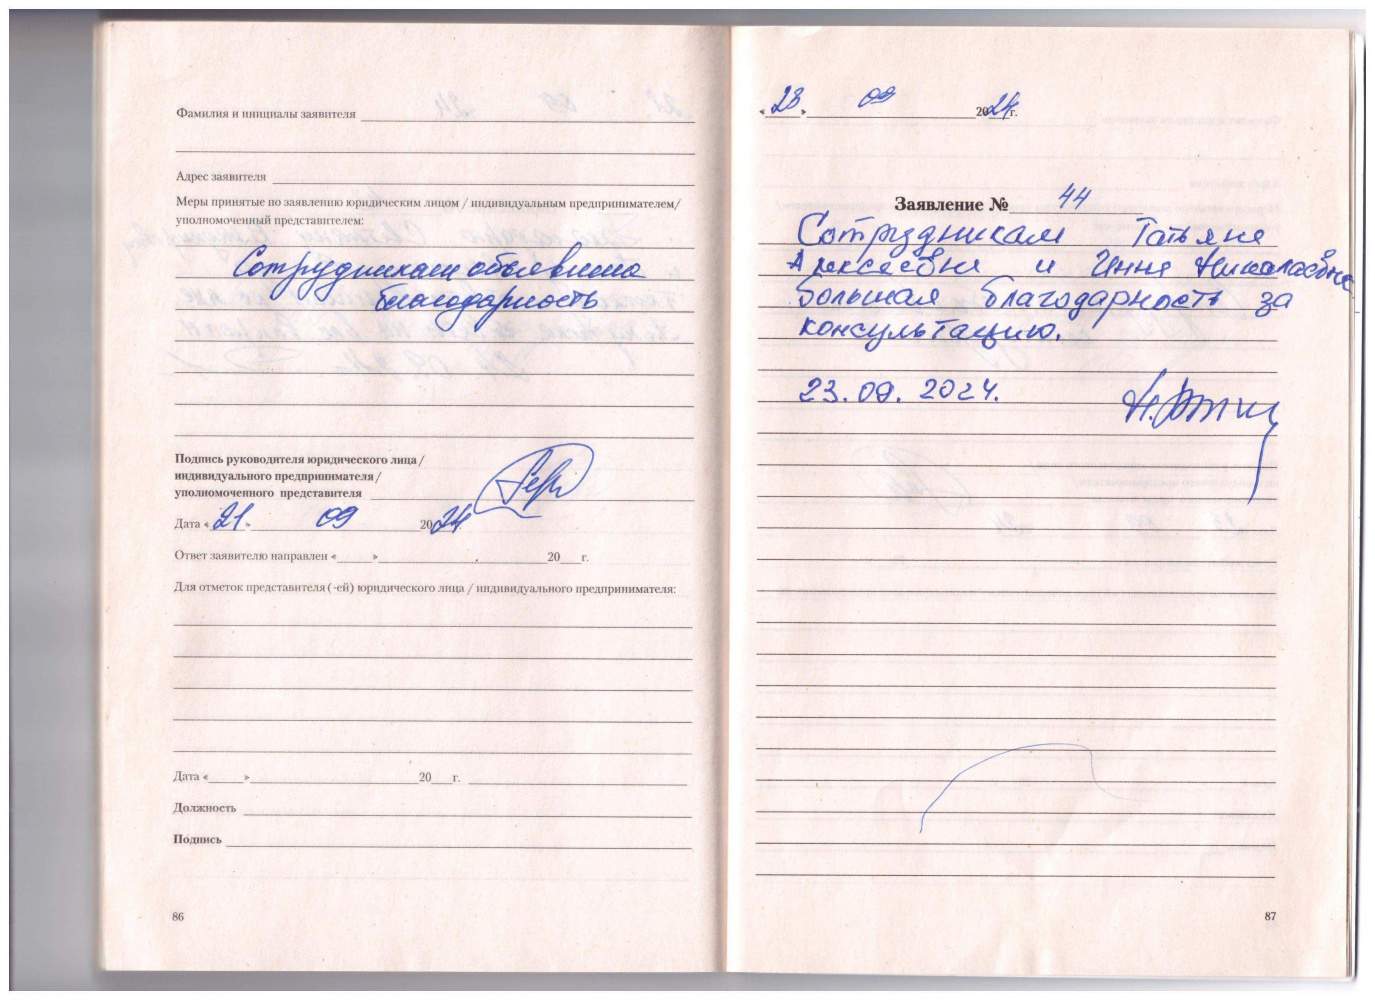 Фамилия и инициалы заявителя
Адрес заявителя
Меры принятые по заявлению юридическим лицом / индивидуальным предпринимателем/
уполномоченный представителем:
Сотрудникам объявлена
благодарность
Подпись руководителя юридического лица /
индивидуального предпринимателя /
уполномоченного представителя
Дата « 21 » 09 2024
Ответ заявителю направлен « » 20 г.
Для отметок представителя ( -ей) юридического лица / индивидуального предпринимателя:
Дата « » 20 г.
Должность
Подпись
86
« 23 » 09 2024г.
Заявление № 44
Сотрудникам Татьяне
Алексеевне и Инне Николаевне
большая благодарность за
консультацию.
23.09.2024.
87